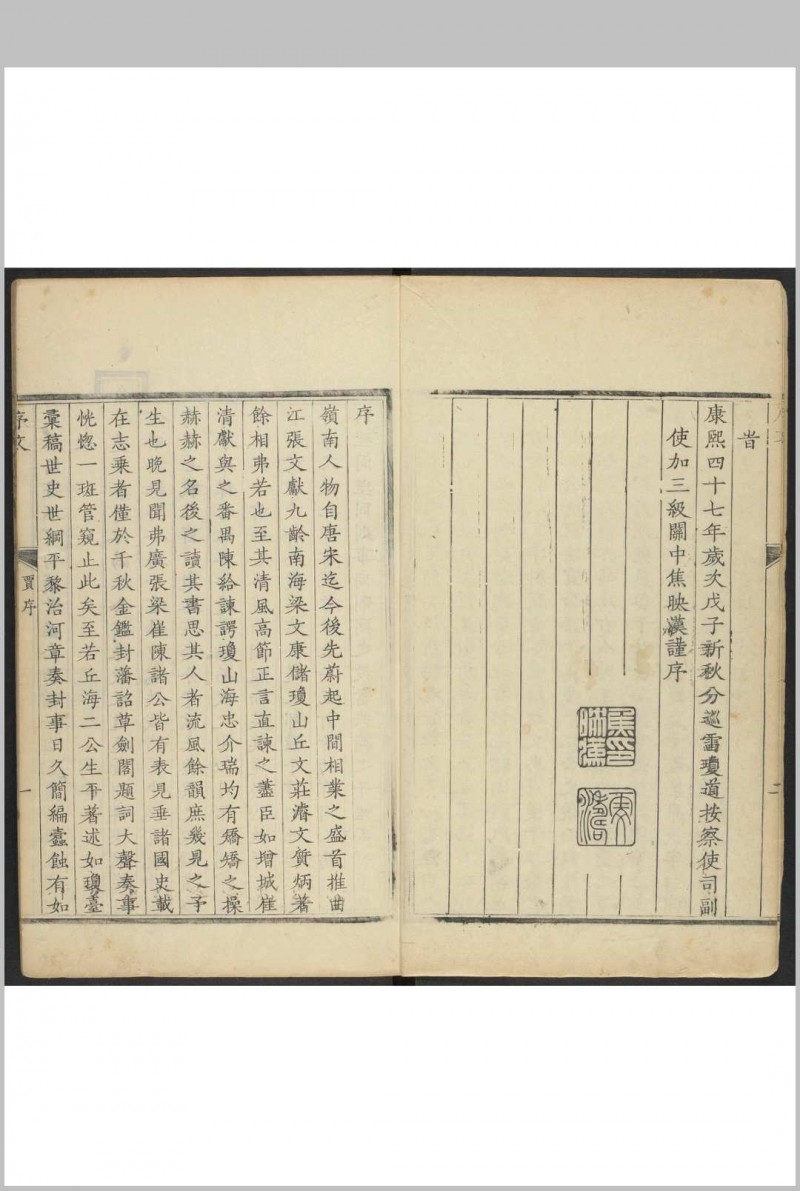 旹
康熙四十七年歲次戊子新秋分巡雷瓊道按察使司副
使加三級關中焦映漢謹序
二
序
嶺南人物自唐宋迄今後先蔚起中間相業之盛首推曲
江張文獻九齡南海梁文康儲瓊山丘文莊濬文質炳著
餘相弗若也至其清風高節正言直諫之藎臣如增城崔
清獻與之番禺陳給諫諤瓊山海忠介瑞均有矯矯之操
赫赫之名後之讀其書思其人者流風餘韻庶幾見之予
生也晚見聞弗廣張梁崔陳諸公皆有表見垂諸國史載
在志乘者僅於千秋金鑑封藩詔草劍閣題詞大聲奏事
恍惚一斑管窺止此矣至若丘海二公生平著述如瓊臺
彙稿世史世綱平黎治河章奏封事日久簡編蠹蝕有如
序文
賈序
一